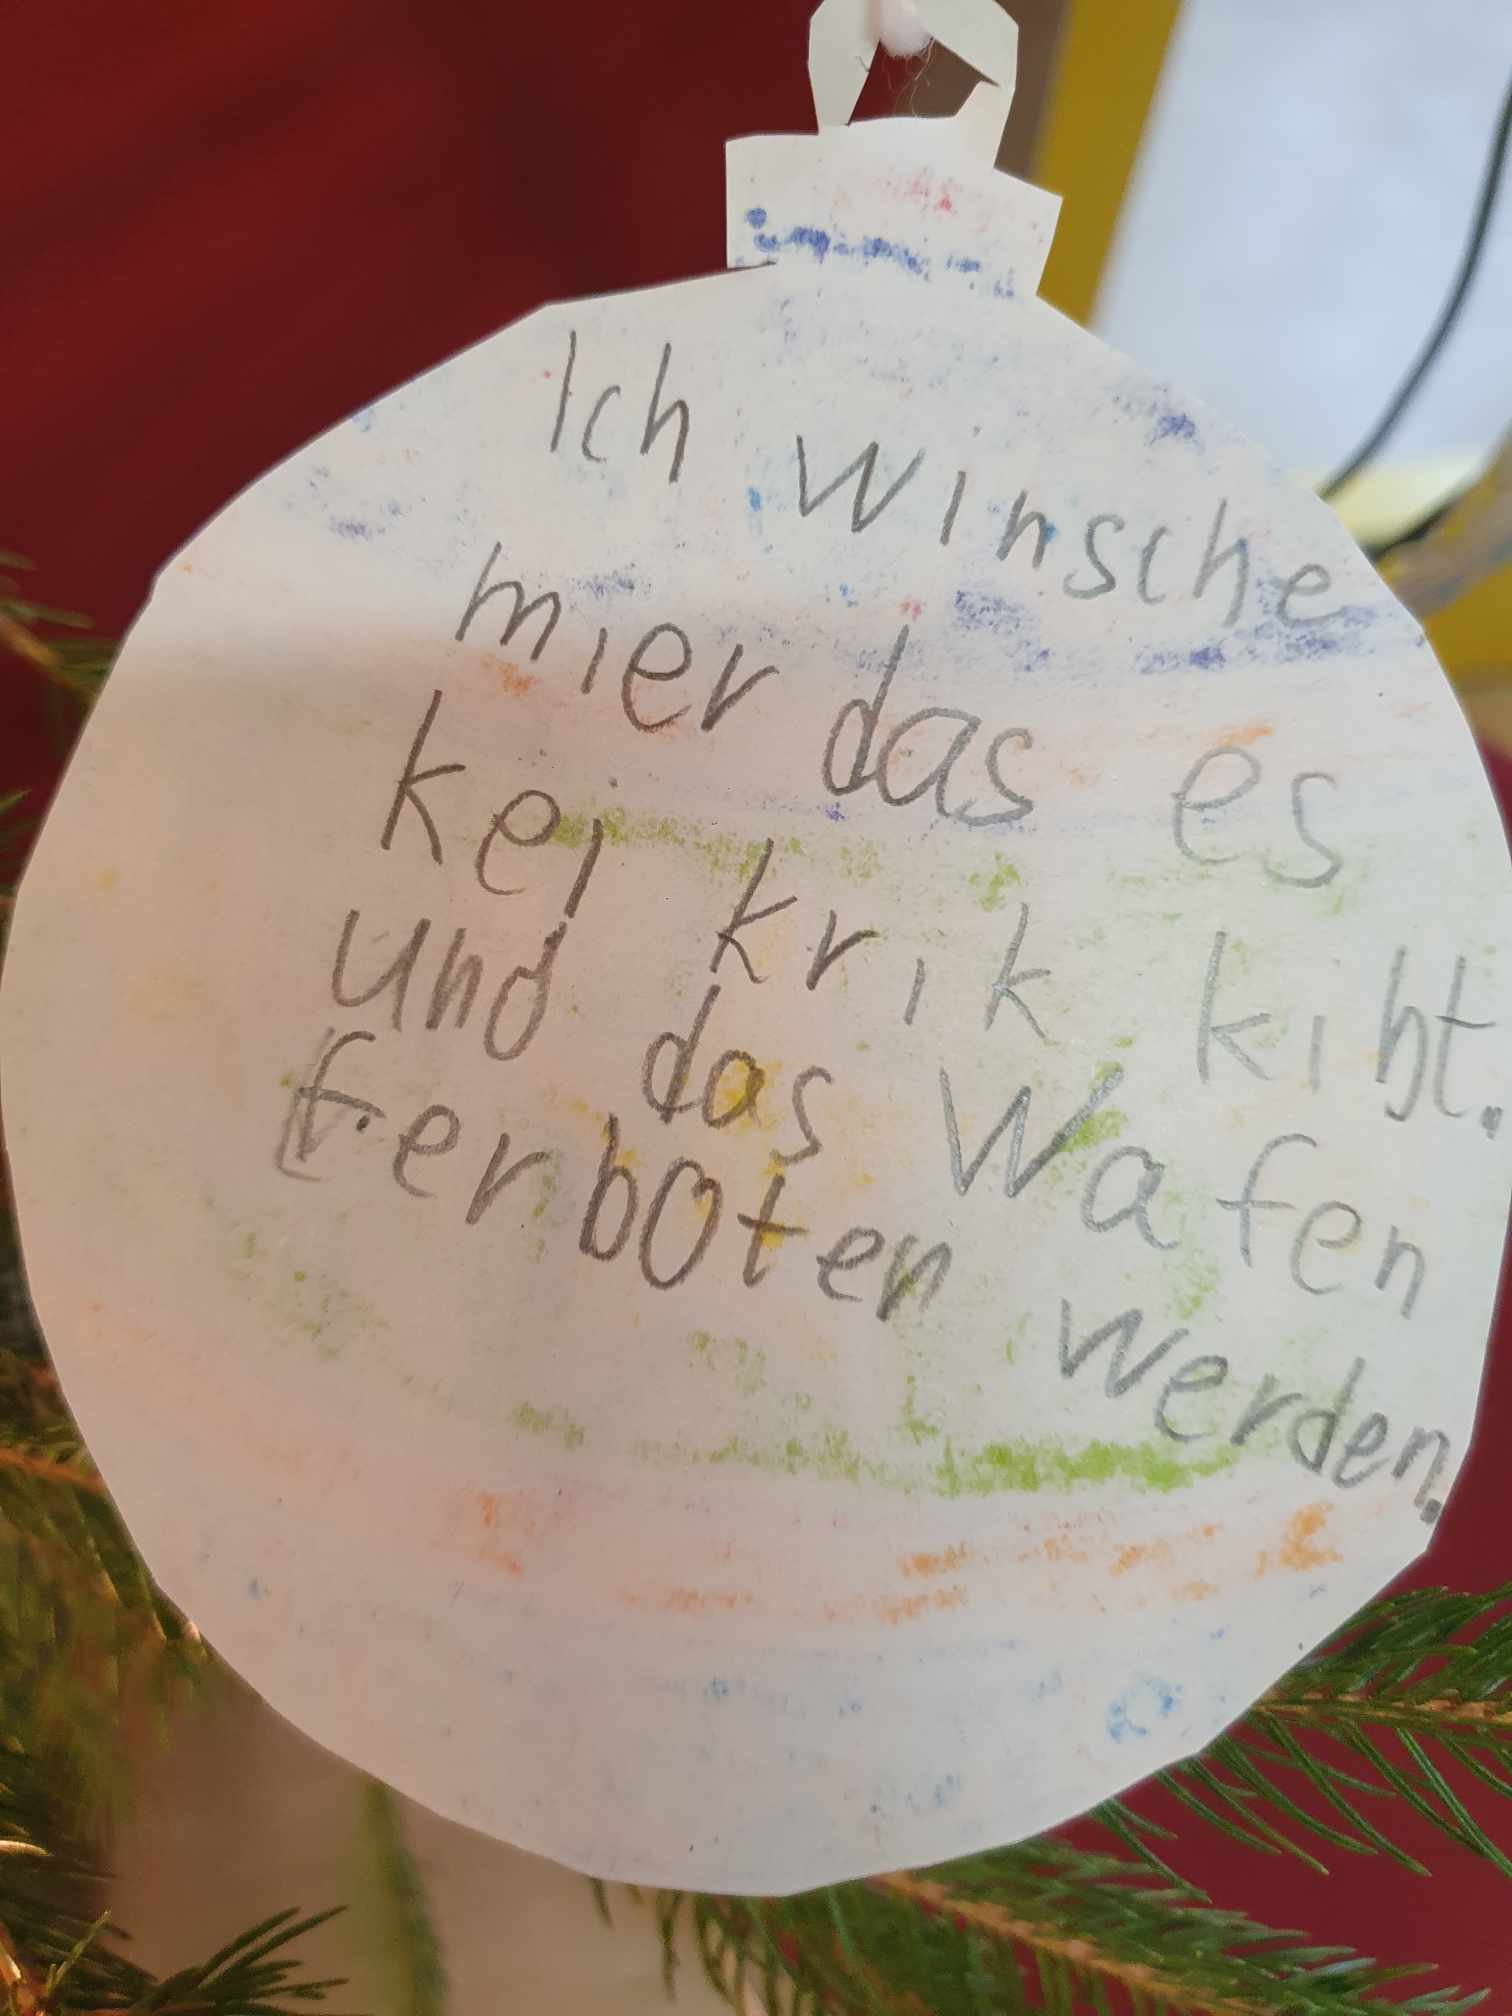 Ich winsche
mier das es
kei krik kibt.
und das Wafen
ferboten werden.